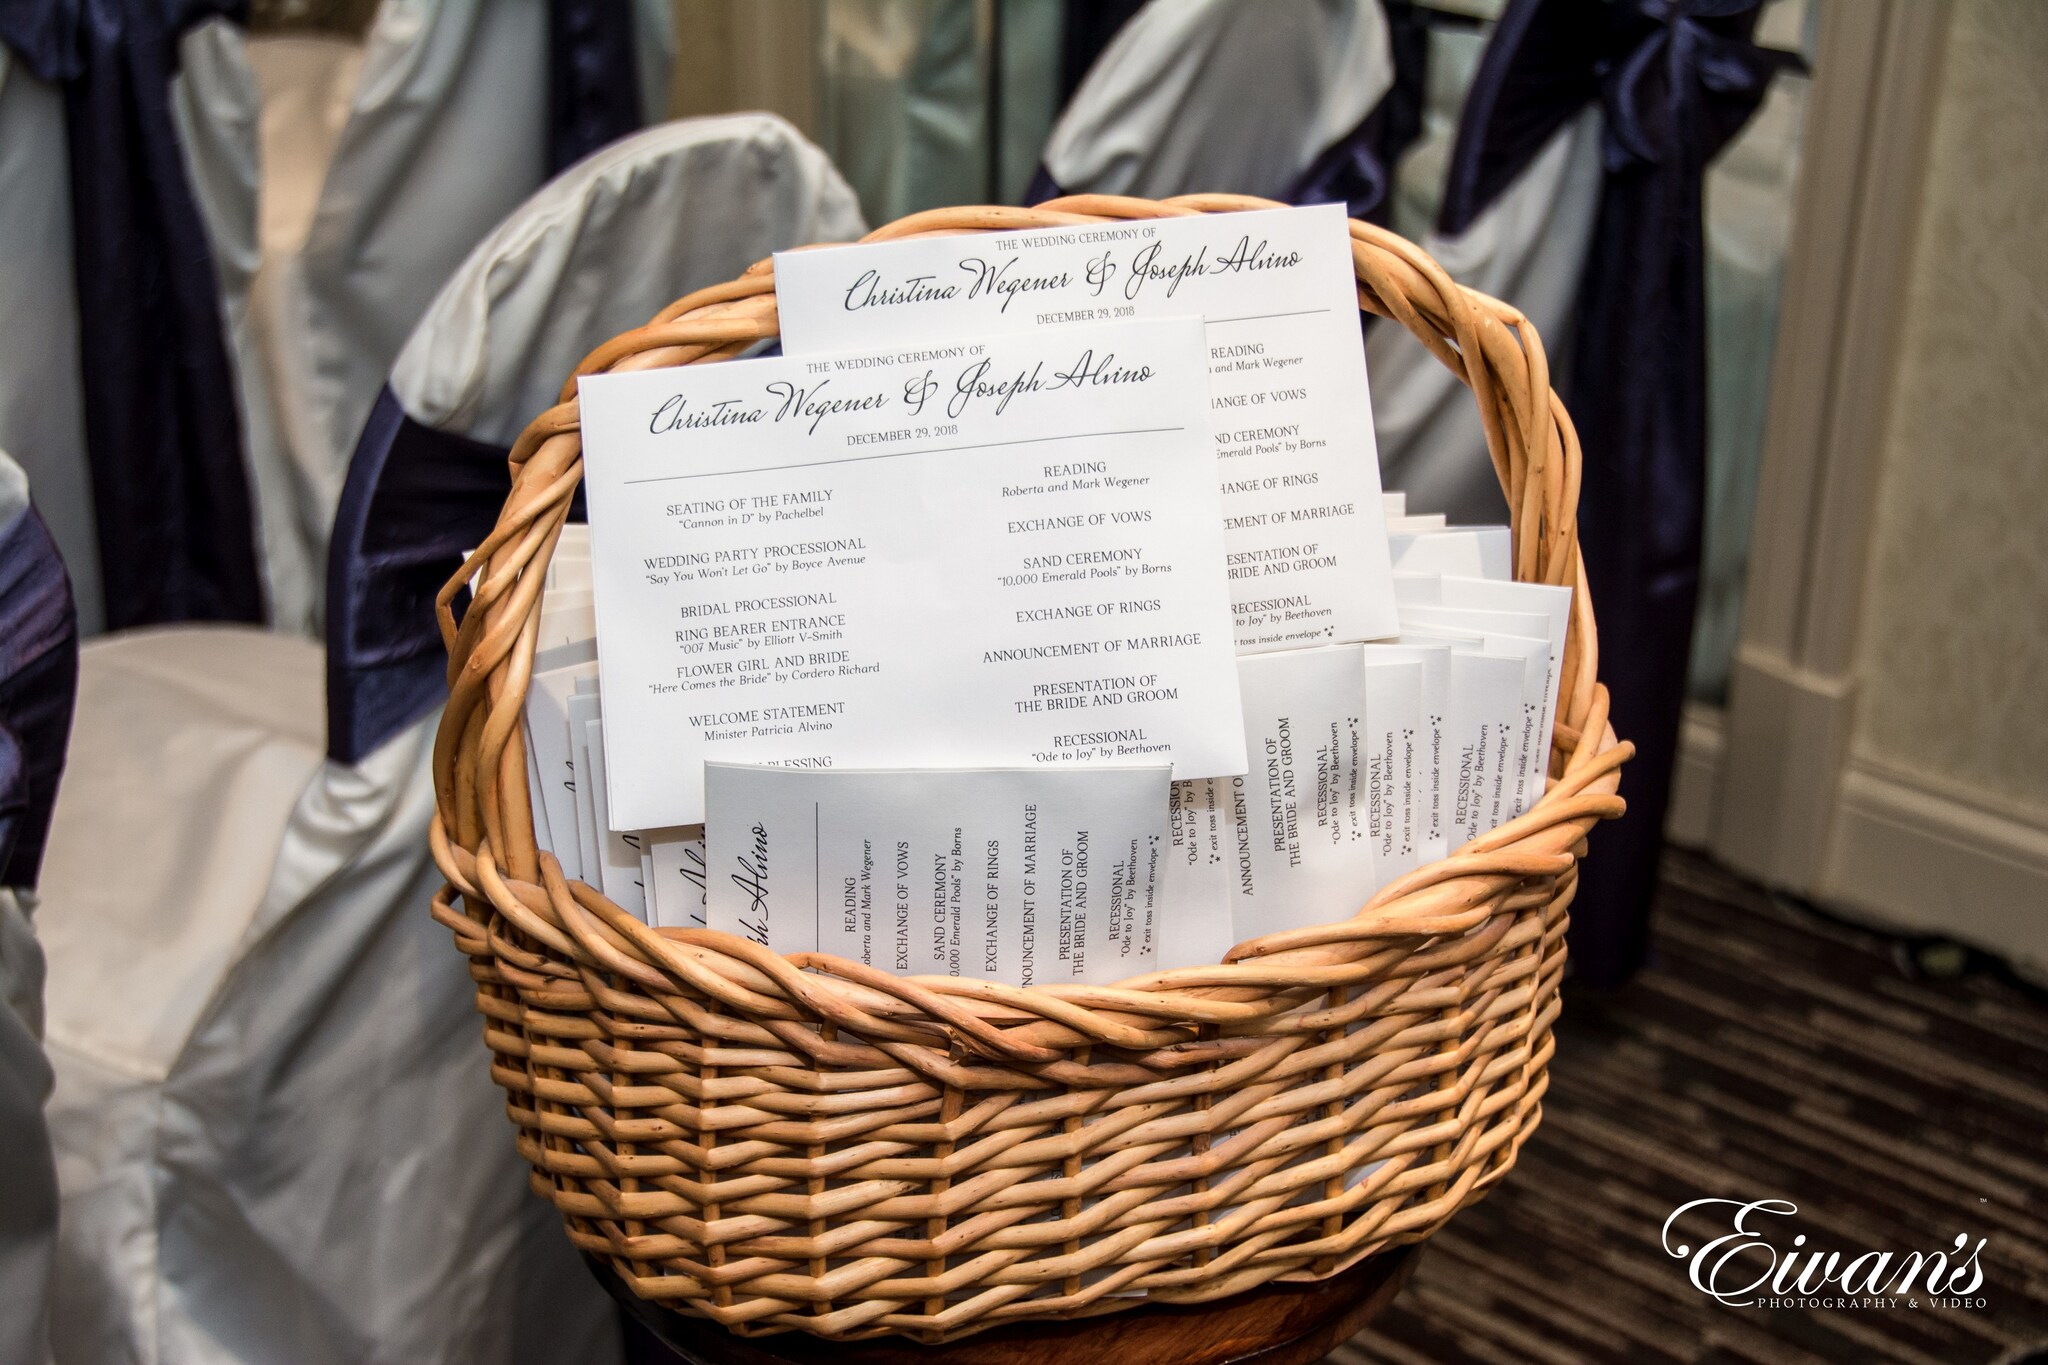 THE WEDDING CEREMONY OF
Christina Wegener & Joseph Alvino
DECEMBER 29, 2018
READING
and Mark Wegener
ANGE OF VOWS
ND CEREMONY
Emerald Pools" by Borns
HANGE OF RINGS
CEMENT OF MARRIAGE
ESENTATION OF
BRIDE AND GROOM
RECESSIONAL
"Ode to Joy" by Beethoven
toss inside envelope
THE WEDDING CEREMONY OF
Christina Wegener & Joseph Alvino
DECEMBER 29, 2018
SEATING OF THE FAMILY
"Cannon in D" by Pachelbel
WEDDING PARTY PROCESSIONAL
"Say You Won't Let Go" by Boyce Avenue
BRIDAL PROCESSIONAL
RING BEARER ENTRANCE
"007 Music" by Elliott V-Smith
FLOWER GIRL AND BRIDE
"Here Comes the Bride" by Cordero Richard
WELCOME STATEMENT
Minister Patricia Alvino
BLESSING
READING
Roberta and Mark Wegener
EXCHANGE OF VOWS
SAND CEREMONY
"10,000 Emerald Pools" by Borns
EXCHANGE OF RINGS
ANNOUNCEMENT OF MARRIAGE
PRESENTATION OF
THE BRIDE AND GROOM
RECESSIONAL
"Ode to Joy" by Beethoven
ph Alvino
READING
oberta and Mark Wegener
EXCHANGE OF VOWS
SAND CEREMONY
0,000 Emerald Pools" by Borns
EXCHANGE OF RINGS
NNOUNCEMENT OF MARRIAGE
PRESENTATION OF
THE BRIDE AND GROOM
RECESSIONAL
"Ode to Joy" by Beethoven
* exit toss inside envelope *
RECESSION
"Ode to Joy" by B
exit toss inside
ANNOUNCEMENT O
PRESENTATION OF
THE BRIDE AND GROOM
RECESSIONAL
"Ode to Joy" by Beethoven
* exit toss inside envelope *
RECESSIONAL
"Ode to Joy" by Beethoven
* exit toss inside envelope *
* exit toss inside envelope *
RECESSIONAL
"Ode to Joy" by Beethoven
* exit toss inside envelope *
exit toss inside envelope *
Eivan's
PHOTOGRAPHY & VIDEO